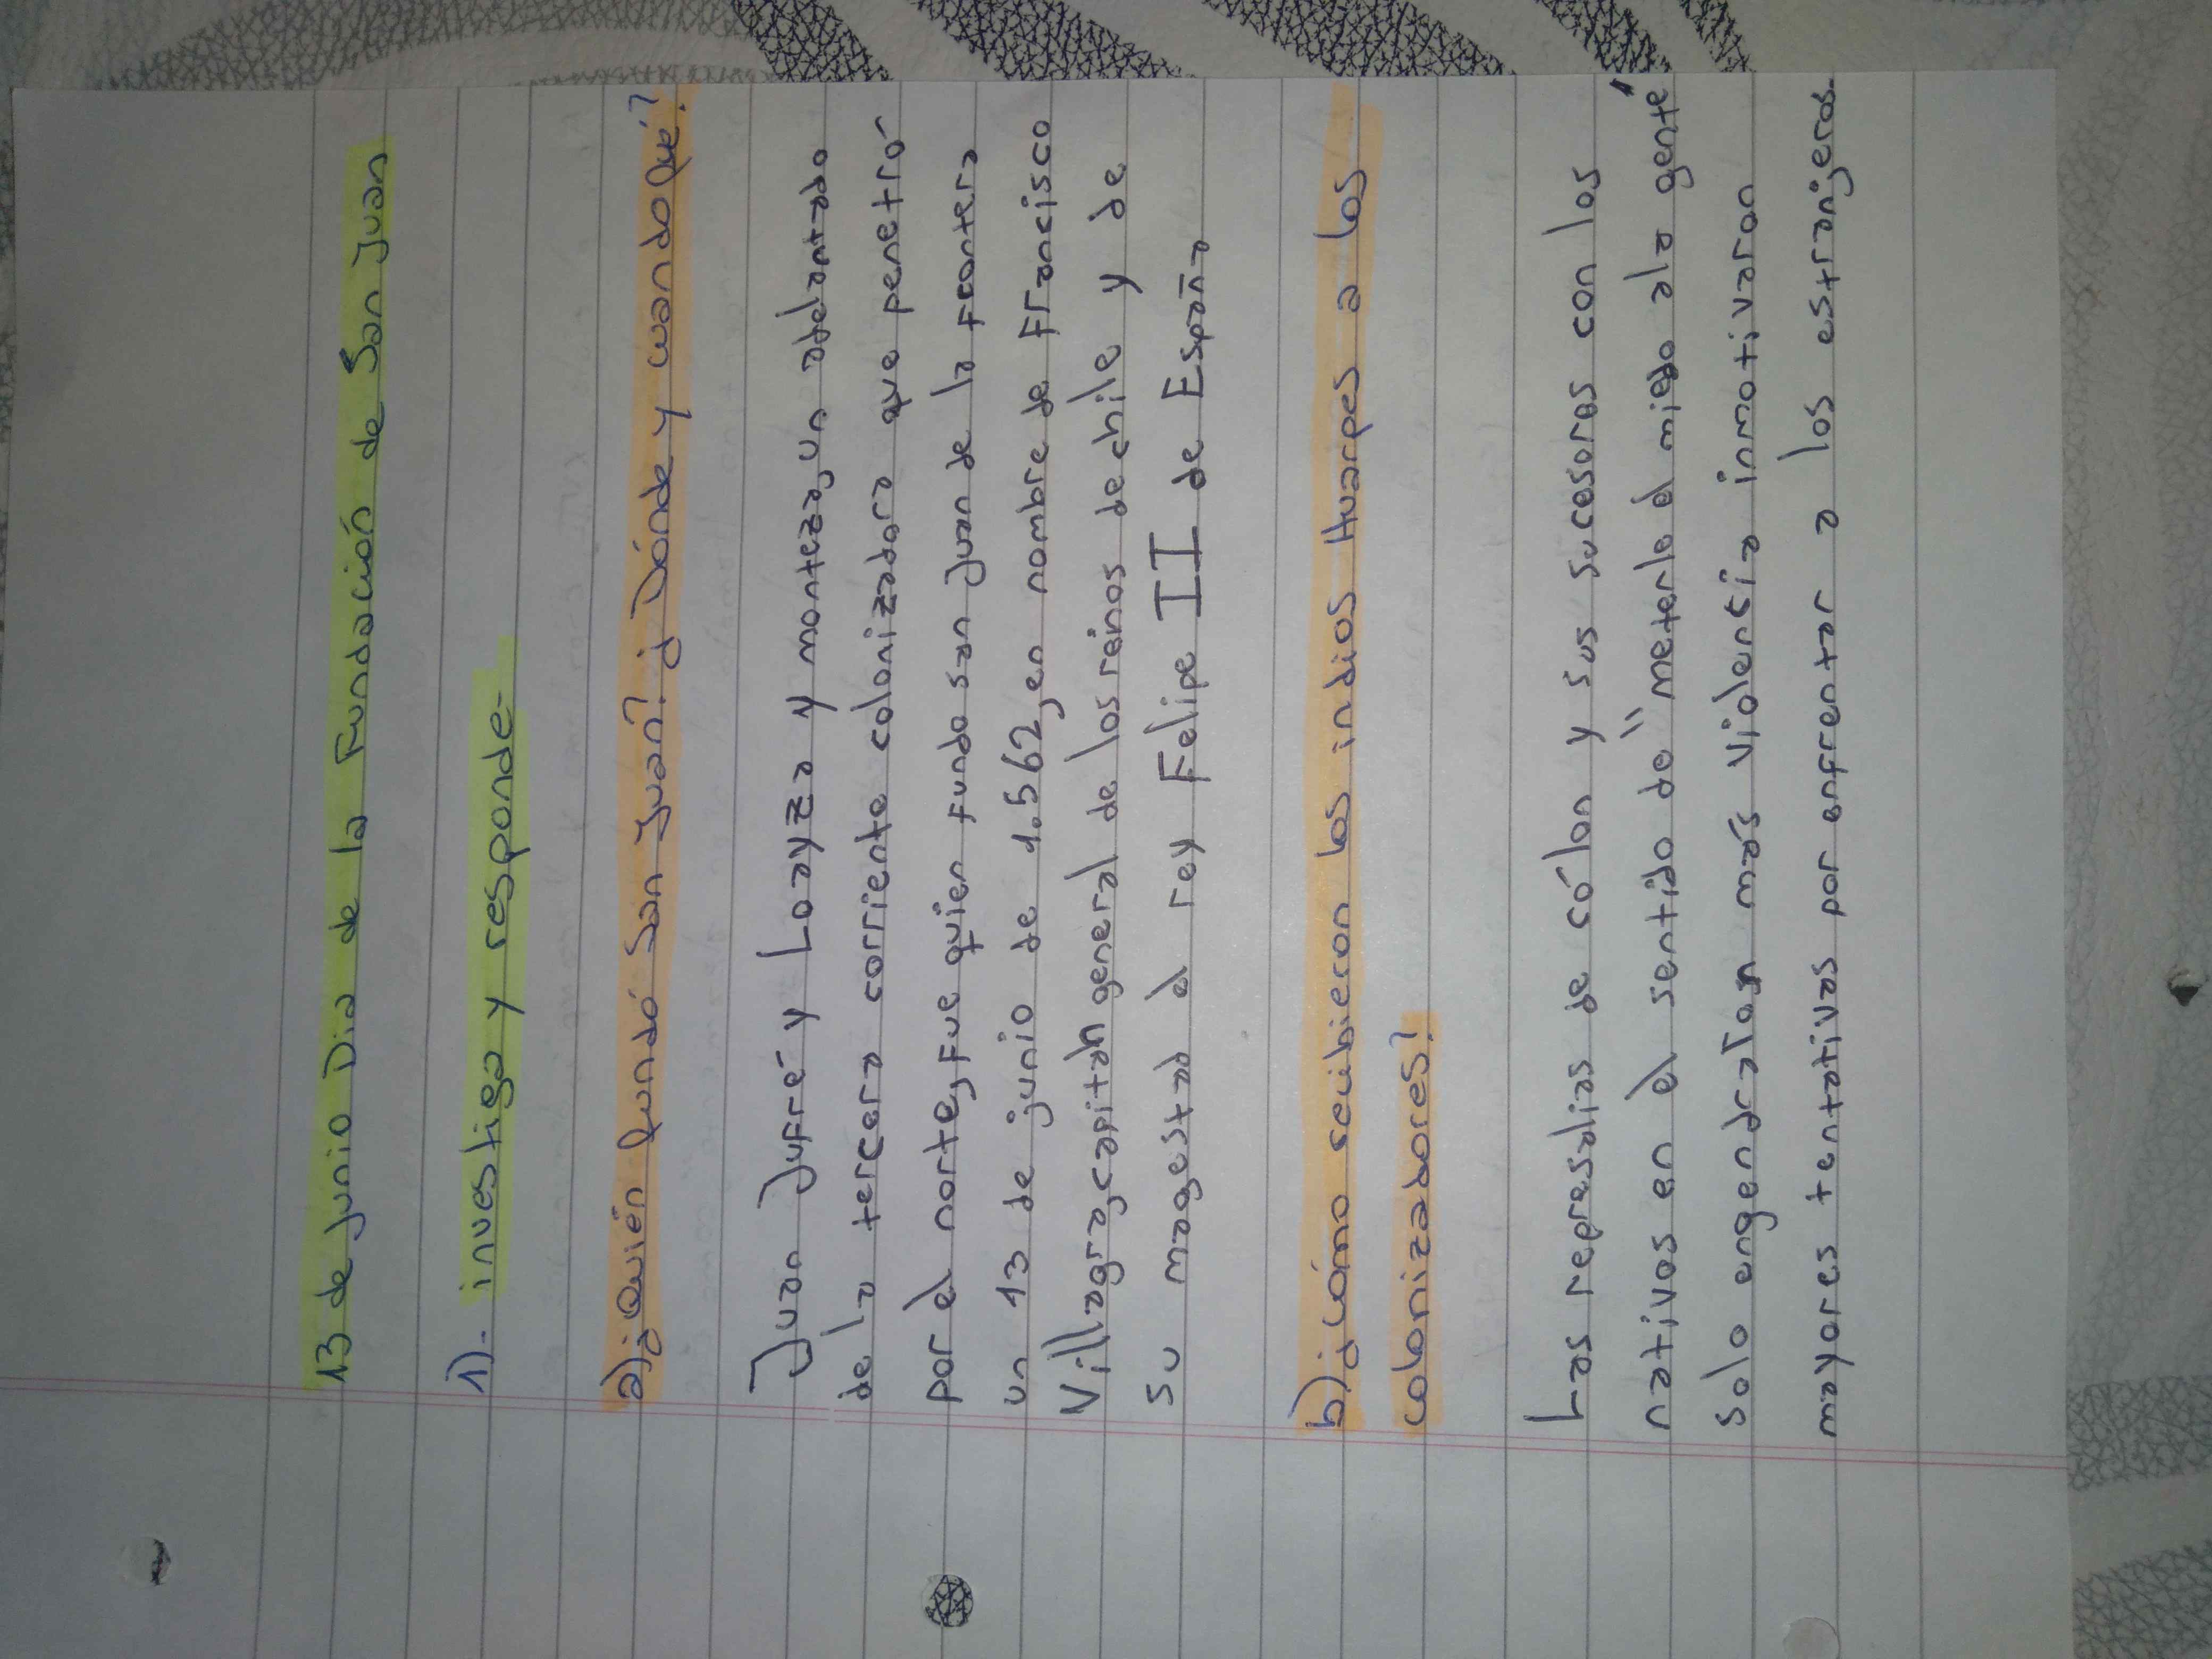 13 de junio Dia de la Fundación de San Juan
1). investiga y responde-
a)¿Quién fundó San Juan? ¿Dónde y cuando fué?
Juan Jufré y Loayza y monteza, un adelantado
de la tercera corriente colonizadora que penetró
por el norte, fue quien fundo san Juan de la frontera
un 13 de junio de 1.562, en nombre de Francisco
Villagra, capitan general de los reinos de chile y de
su magestad el rey Felipe II de España
b)¿cómo recibieron los indios Huarpes a los
colonizadores?
Las represalias de cólon y sus sucesores con los
nativos en el sentido de "meterle el miedo ala gente"
solo engendraron más violencia inmotivaron
mayores tentativas por enfrentar a los estranjeros.